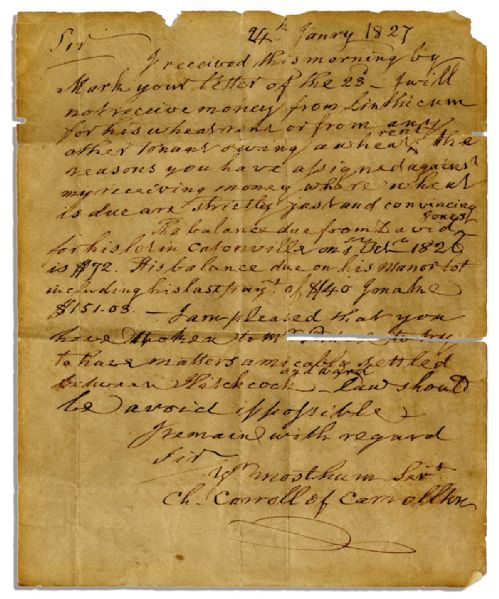 24th Janry 1827
Sir
I received this morning by
Mark your letter of the 23d I will
not receive money from Linthicum
for his wheat rent or from any
other tenant owing a wheat rent, the
reasons you have assigned against
my receiving money where wheat
is due are strictly just and convincing
The balance due from David Jones
for his lot in Catonville on Octr 1826
is $72. His balance due on his Manor lot
including his last paymt. of $140 I make
$151.03. — I am pleased that you
have spoken to Mr to try
to have matters amicably settled
between Hitchcock and Ward. Law should
be avoid if possible
I remain with regard
Sir
Yr. most hum Servt.
Ch. Carroll of Carrollton